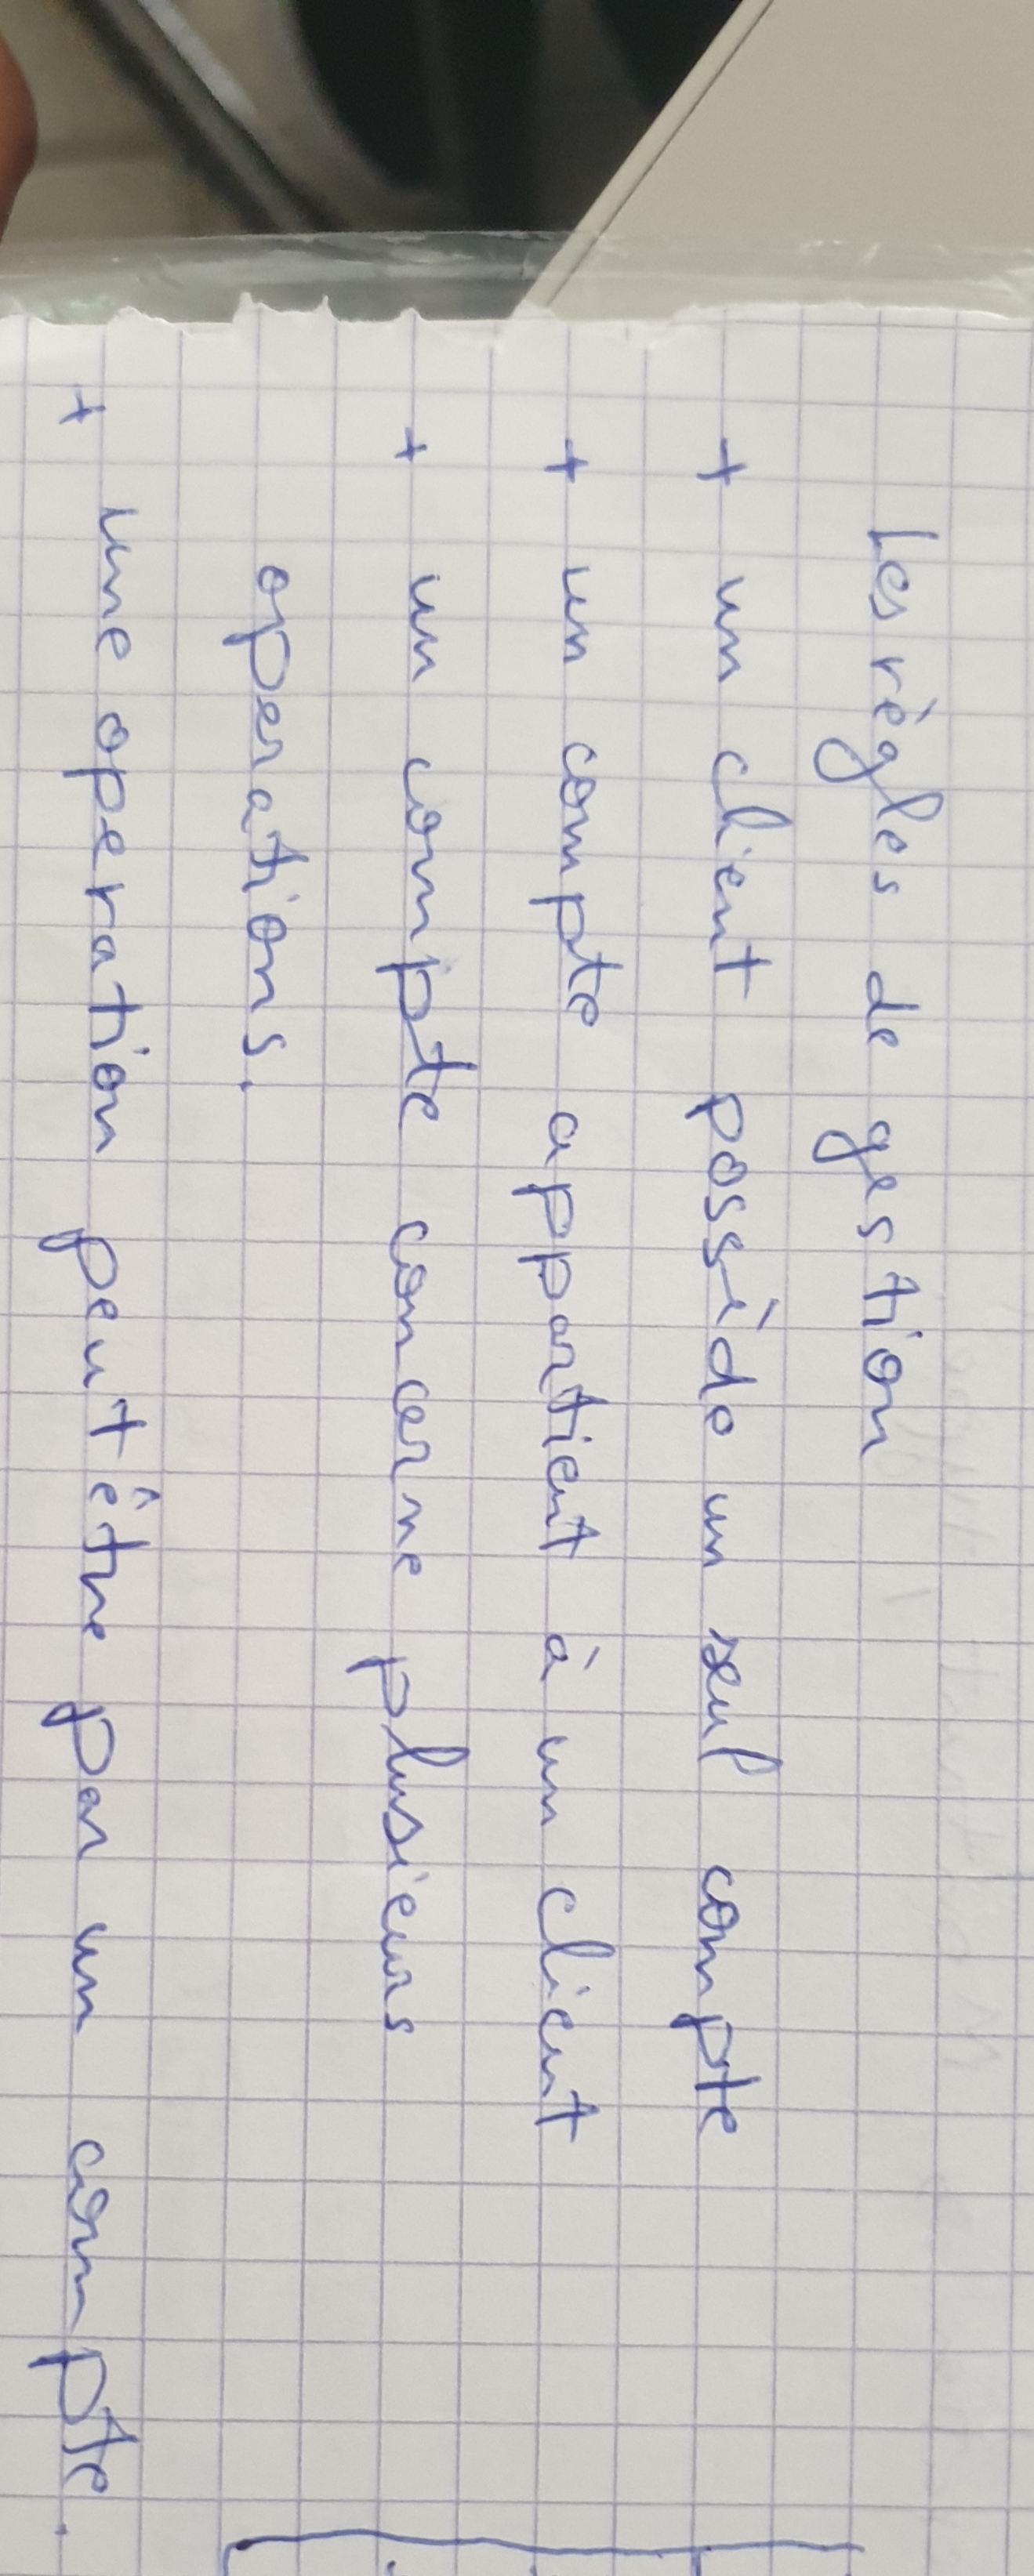 Les règles de gestion
+ un client possède un seul compte
+ un compte appartient à un client
+ un compte concerne plusieurs
operations.
+ une operation peut être par un compte.